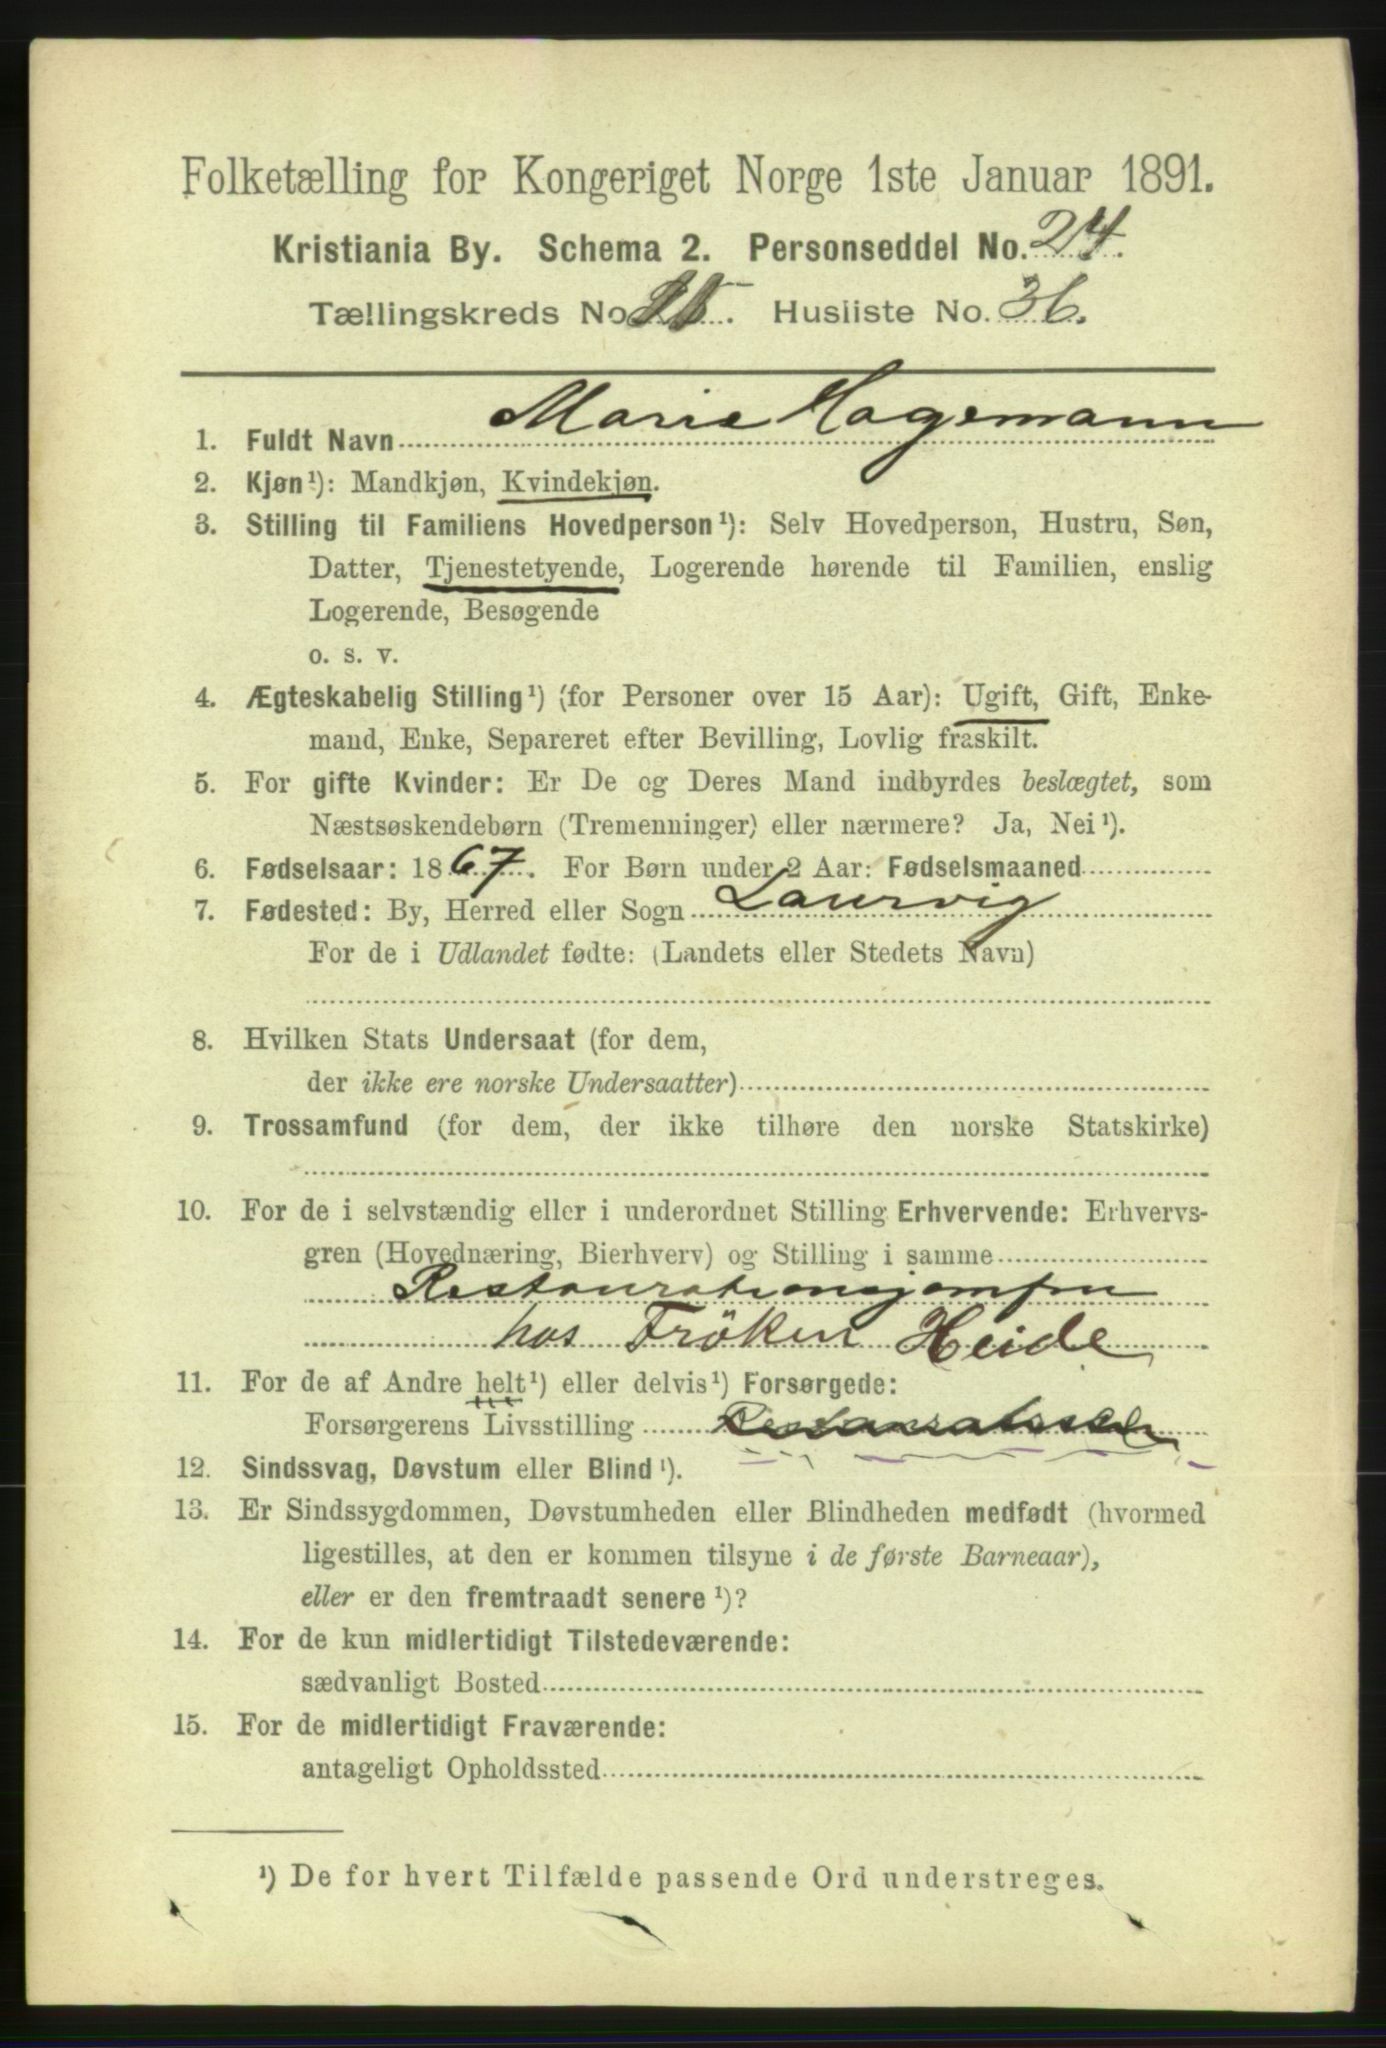 Folketælling for Kongeriget Norge 1ste Januar 1891.
Kristiania By. Schema 2. Personseddel No. 24.
Tællingskreds No. Husliste No. 36.
1. Fuldt Navn Marie Hagemann
2. Kjøn¹): Mandkjøn, Kvindekjøn.
3. Stilling til Familiens Hovedperson¹): Selv Hovedperson, Hustru, Søn,
Datter, Tjenestetyende, Logerende hørende til Familien, enslig
Logerende, Besøgende
o. s. v.
4. Ægteskabelig Stilling¹) (for Personer over 15 Aar): Ugift, Gift, Enke-
mand, Enke, Separeret efter Bevilling, Lovlig fraskilt.
5. For gifte Kvinder: Er De og Deres Mand indbyrdes beslægtet, som
Næstsøskendebørn (Tremenninger) eller nærmere? Ja, Nei¹).
6. Fødselsaar: 1867. For Børn under 2 Aar: Fødselsmaaned
7. Fødested: By, Herred eller Sogn Laurvig
For de i Udlandet fødte: (Landets eller Stedets Navn)
8. Hvilken Stats Undersaat (for dem,
der ikke ere norske Undersaatter)
9. Trossamfund (for dem, der ikke tilhøre den norske Statskirke)
10. For de i selvstændig eller i underordnet Stilling Erhvervende: Erhvervs-
gren (Hovednæring, Bierhverv) og Stilling i samme
Restaurationsjomfru
hos Fröken Heide
11. For de af Andre helt¹) eller delvis¹) Forsørgede:
Forsørgerens Livsstilling
12. Sindssvag, Døvstum eller Blind¹).
13. Er Sindssygdommen, Døvstumheden eller Blindheden medfødt (hvormed
ligestilles, at den er kommen tilsyne i de første Barneaar),
eller er den fremtraadt senere¹)?
14. For de kun midlertidigt Tilstedeværende:
sædvanligt Bosted
15. For de midlertidigt Fraværende:
antageligt Opholdssted
¹) De for hvert Tilfælde passende Ord understreges.